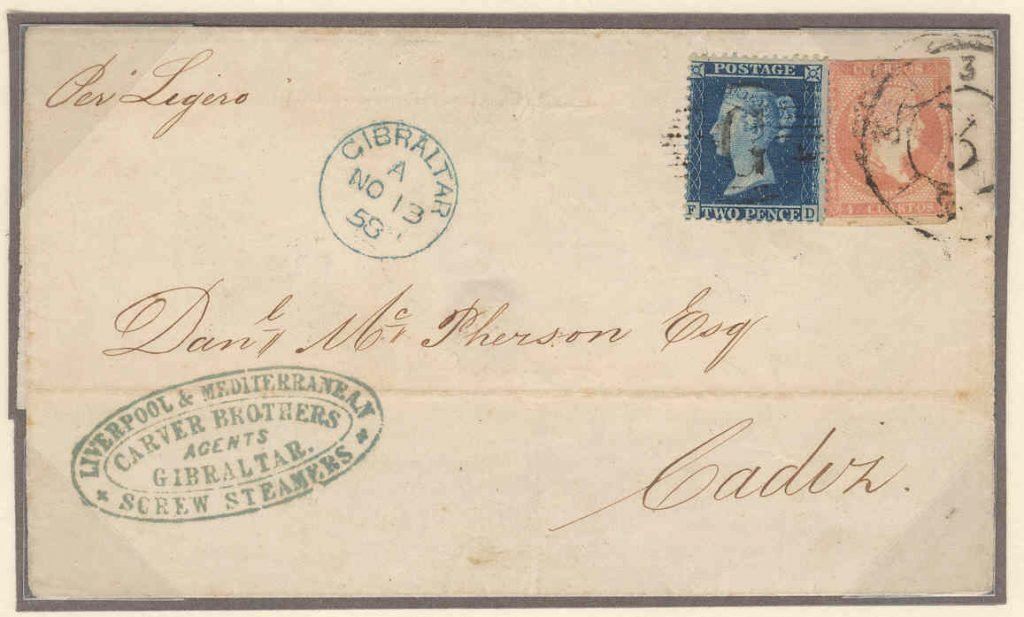 Per Ligero
GIBRALTAR
A
NO 13
58
POSTAGE
F TWO PENCE D
G
CORREOS
4 CUARTOS
3
3
Danl Mc Pherson Esq
Cadiz.
LIVERPOOL & MEDITERRANEAN
CARVER BROTHERS
AGENTS
GIBRALTAR.
SCREW STEAMERS